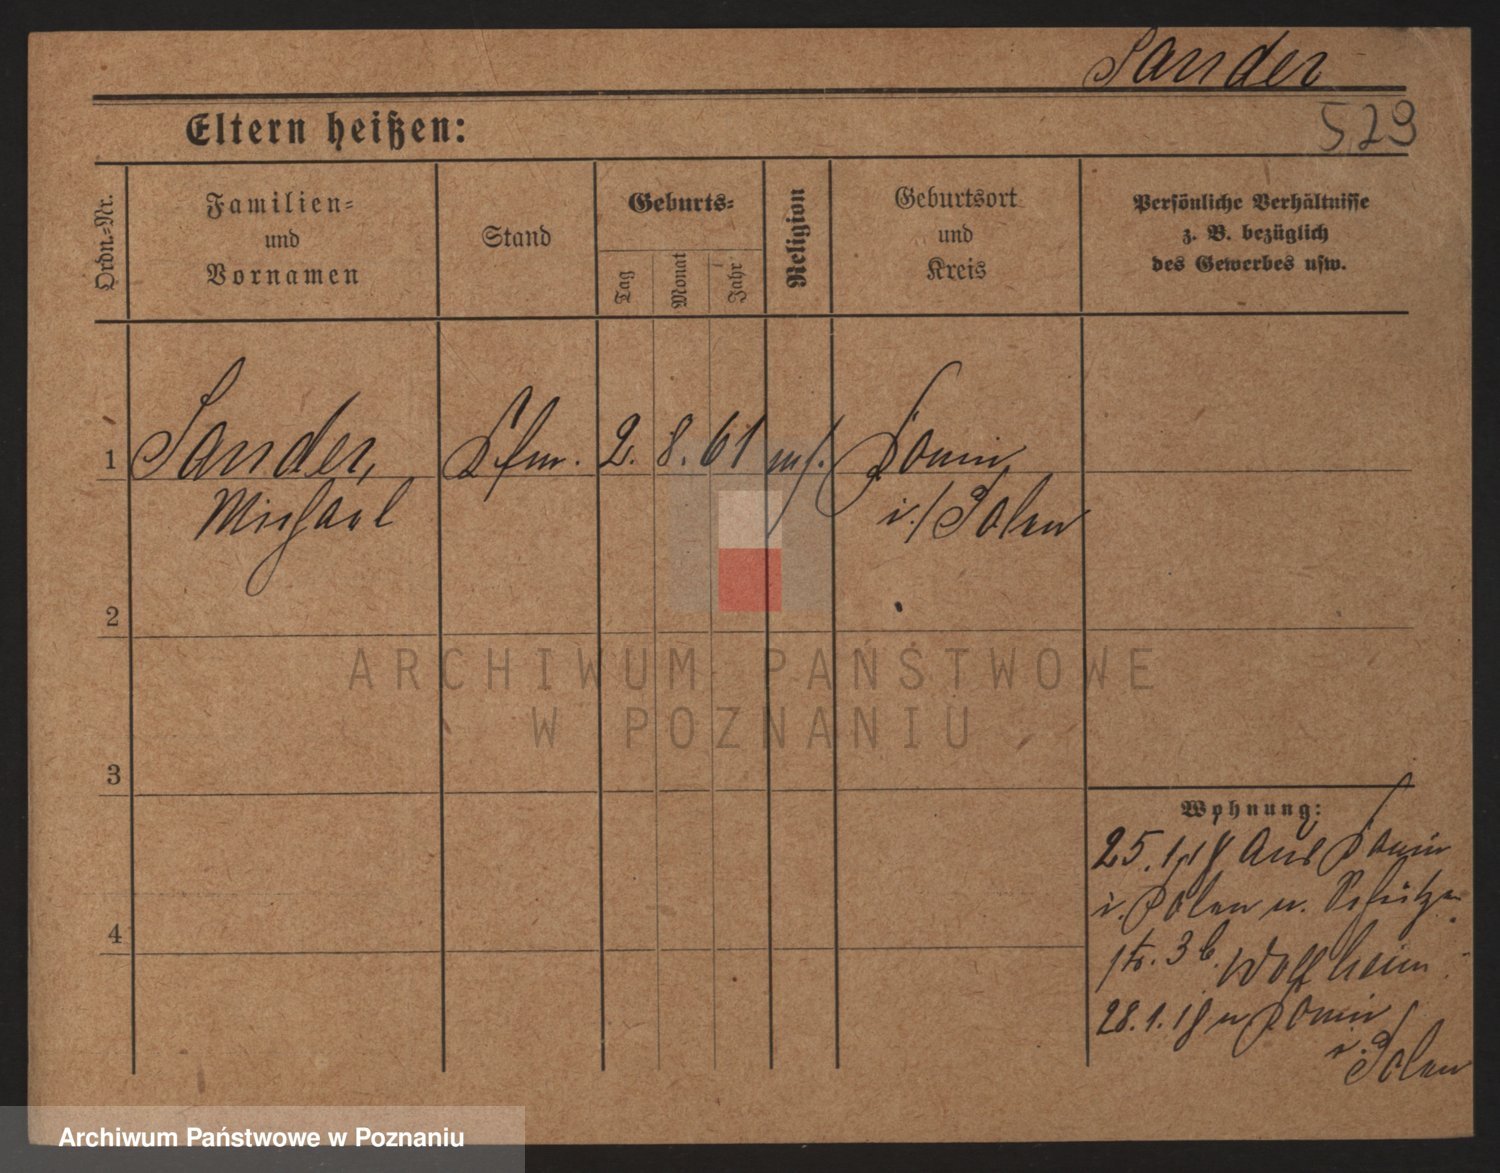 Sander
529
Eltern heißen:
Ordn.-Nr.
Familien-
und
Vornamen
Stand
Geburts-
Tag
Monat
Jahr
Religion
Geburtsort
und
Kreis
Persönliche Verhältnisse
z. B. bezüglich
des Gewerbes usw.
1 Sander, Kfm. 2. 8. 61 mos. Konin
Michael i./Polen
2
3
4
Wohnung:
25.1.18 aus Konin
i. Polen n. Schützen
str. 3 b. Wolffheim
28.1.18 n Konin
i. Polen
ARCHIWUM PAŃSTWOWE
W POZNANIU
Archiwum Państwowe w Poznaniu